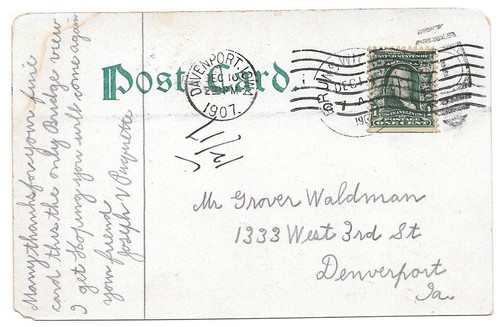 Many thanks for your fine
card this the only Bridge view
I get Hoping you will come again
your friend
Joseph V Paquette
Post Card
DAVENPORT, IO
DEC 10
PM
1907.
DEC 1
7 A
190
ONE CENT
Mr Grover Waldman
1333 West 3rd St
Denverport
Ia.